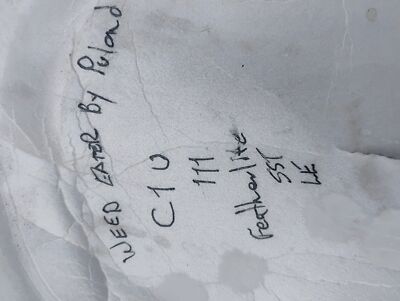 WEED EATER By Poland
C1U
111
Featherlite
SST
LE